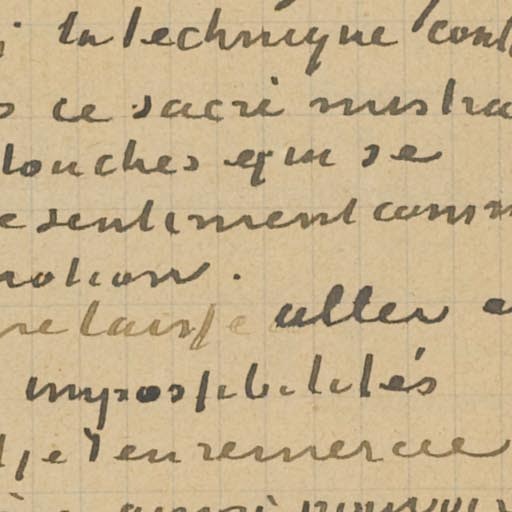 la technique cont
ce sacré mistra
touches qui se
e sentiment comm
motion.
me laisse aller a
impossibilités
je t'en remercie
ainsi pouvoir